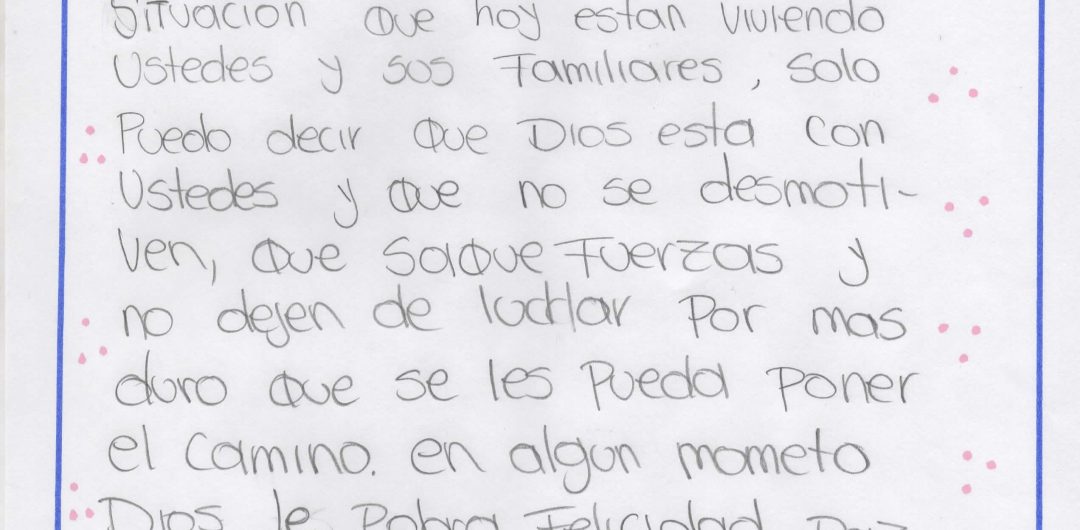 Situacion que hoy estan viviendo
Ustedes y sus Familiares, solo
Puedo decir que Dios esta con
Ustedes y que no se desmoti-
ven, que saque Fuerzas y
no dejen de luchar Por mas
duro que se les Pueda Poner
el camino. en algun mometo
Dios le Felicidad